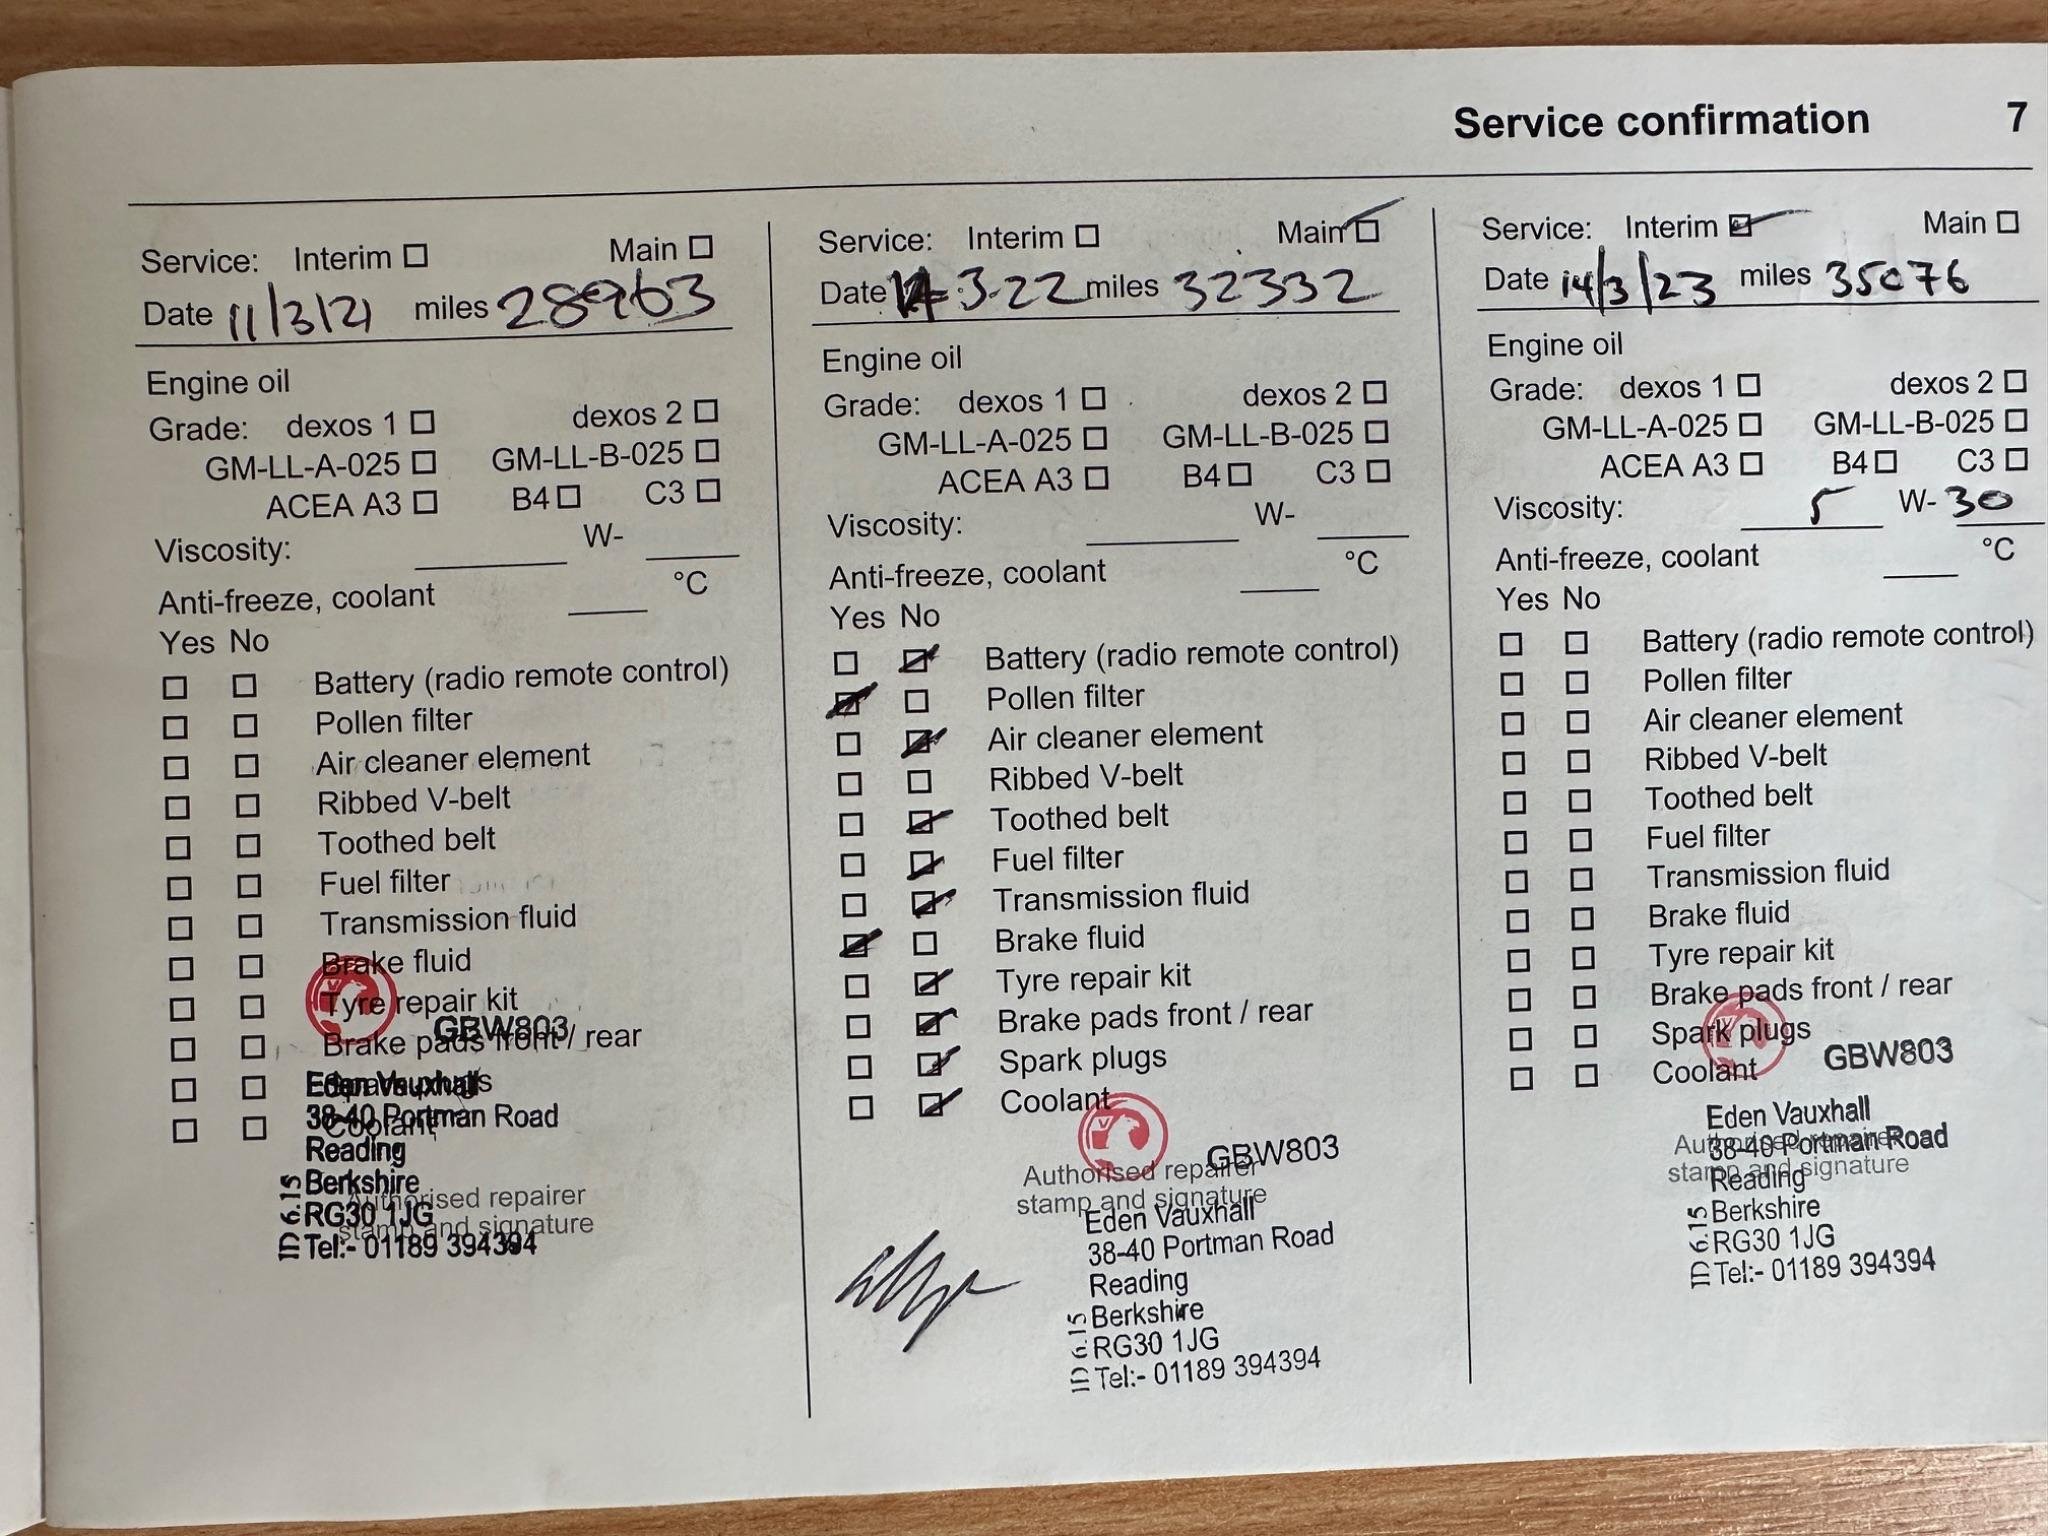 Service confirmation 7
Service: Interim Main
Date 11/3/21 miles 28963
Engine oil
Grade: dexos 1 dexos 2
GM-LL-A-025 GM-LL-B-025
ACEA A3 B4 C3
Viscosity: W-
Anti-freeze, coolant °C
Yes No
Battery (radio remote control)
Pollen filter
Air cleaner element
Ribbed V-belt
Toothed belt
Fuel filter
Transmission fluid
Brake fluid
Tyre repair kit
GBW803
Brake pads front / rear
Eden Vauxhall
38-40 Portman Road
Coolant
Reading
Berkshire
Authorised repairer
RG30 1JG
stamp and signature
Tel:- 01189 394394
Service: Interim Main
Date 3-22 miles 32332
Engine oil
Grade: dexos 1 dexos 2
GM-LL-A-025 GM-LL-B-025
ACEA A3 B4 C3
Viscosity: W-
Anti-freeze, coolant °C
Yes No
Battery (radio remote control)
Pollen filter
Air cleaner element
Ribbed V-belt
Toothed belt
Fuel filter
Transmission fluid
Brake fluid
Tyre repair kit
Brake pads front / rear
Spark plugs
Coolant
GBW803
Authorised repairer
stamp and signature
Eden Vauxhall
38-40 Portman Road
Reading
Berkshire
RG30 1JG
Tel:- 01189 394394
Service: Interim Main
Date 14/3/23 miles 35076
Engine oil
Grade: dexos 1 dexos 2
GM-LL-A-025 GM-LL-B-025
ACEA A3 B4 C3
Viscosity: 5 W-30
Anti-freeze, coolant °C
Yes No
Battery (radio remote control)
Pollen filter
Air cleaner element
Ribbed V-belt
Toothed belt
Fuel filter
Transmission fluid
Brake fluid
Tyre repair kit
Brake pads front / rear
Spark plugs
GBW803
Coolant
Eden Vauxhall
Authorised repairer
38-40 Portman Road
stamp and signature
Reading
Berkshire
RG30 1JG
Tel:- 01189 394394